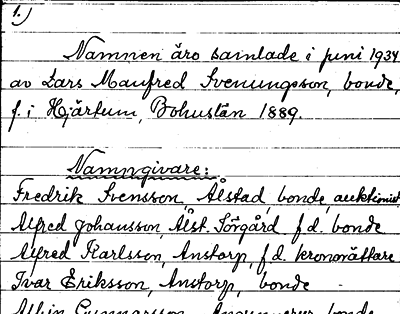 1.)
Namnen äro samlade i juni 1934
av Lars Manfred Svenungsson, bonde,
f. i Hjärtum, Bohuslän 1889.
Namngivare:
Fredrik Svensson, Ålstad, bonde, auktionist
Alfred Johansson, Ålst. Sörgård f.d. bonde
Alfred Karlsson, Anstorp, f.d. kronorättare
Ivar Eriksson, Anstorp, bonde
Albin Gunnarsson, bonde